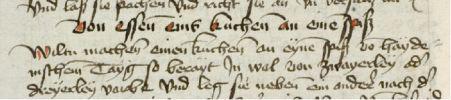 vnd laß sie pachen vnd richt sie an
Von essen eins kuchen an eine spiß
Wiltu machen einen kuchen an eyne spiß so hayde
nischem Tayg so berayt In wol von zwayerley od'
dreyerley varbe vnd leg sie neben ein ander nach d'